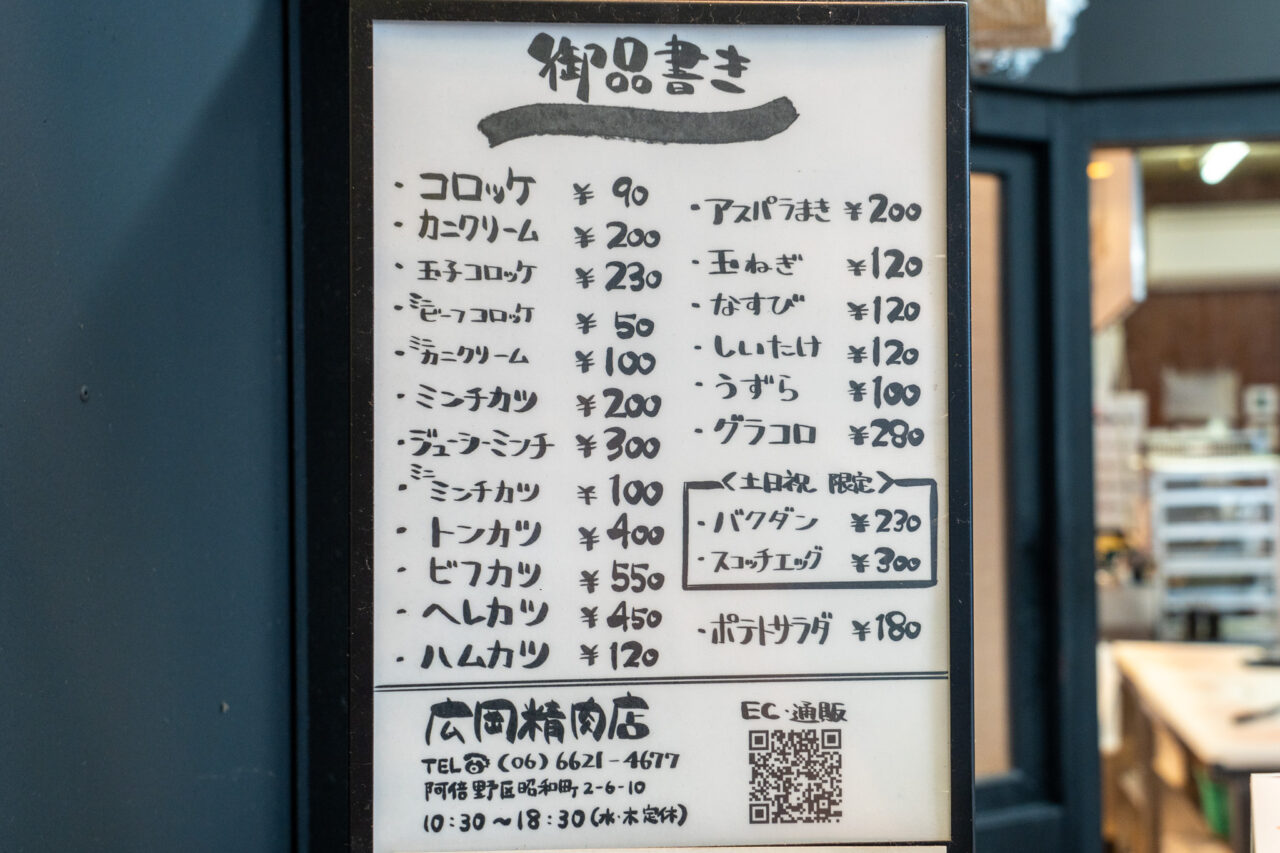 御品書き
・コロッケ ¥90
・カニクリーム ¥200
・玉子コロッケ ¥230
・ミニビーフコロッケ ¥50
・ミニカニクリーム ¥100
・ミンチカツ ¥200
・ジューシーミンチ ¥300
・ミニミンチカツ ¥100
・トンカツ ¥400
・ビフカツ ¥550
・ヘレカツ ¥450
・ハムカツ ¥120
・アスパラまき ¥200
・玉ねぎ ¥120
・なすび ¥120
・しいたけ ¥120
・うずら ¥100
・グラコロ ¥280
〈土日祝 限定〉
・バクダン ¥230
・スコッチエッグ ¥300
・ポテトサラダ ¥180
広岡精肉店
TEL☎(06)6621-4677
阿倍野区昭和町2-6-10
10:30〜18:30(水・木定休)
EC・通販